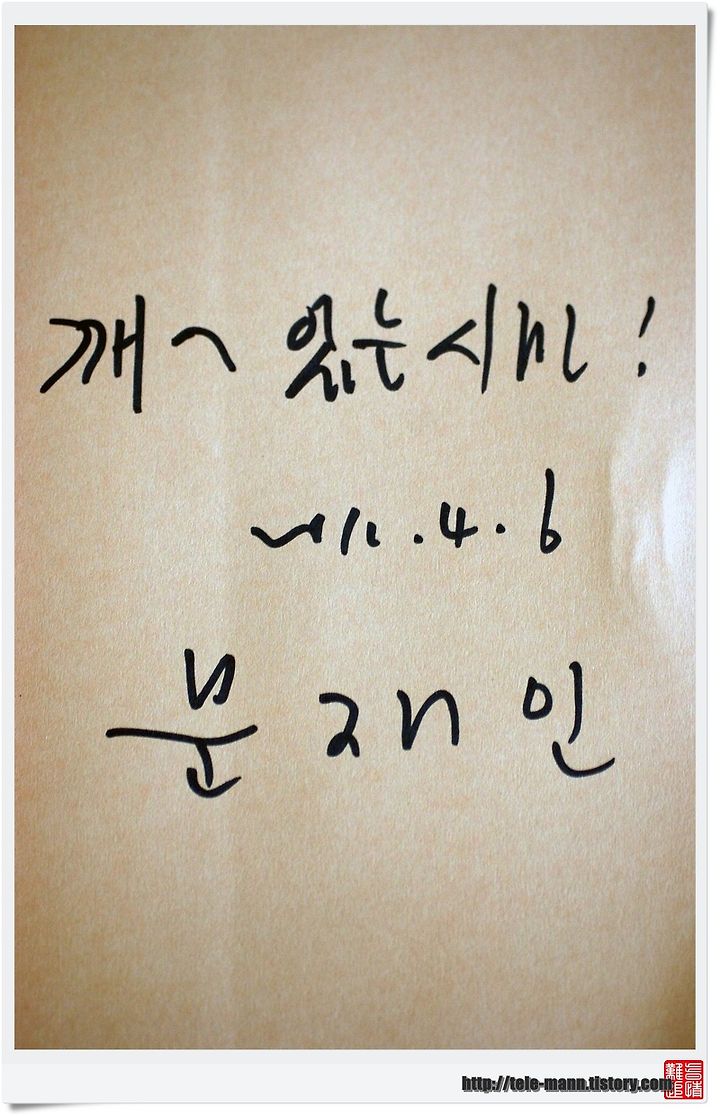 깨어 있는 시민!
2012. 4. 6
문재인
http://tele-mann.tistory.com